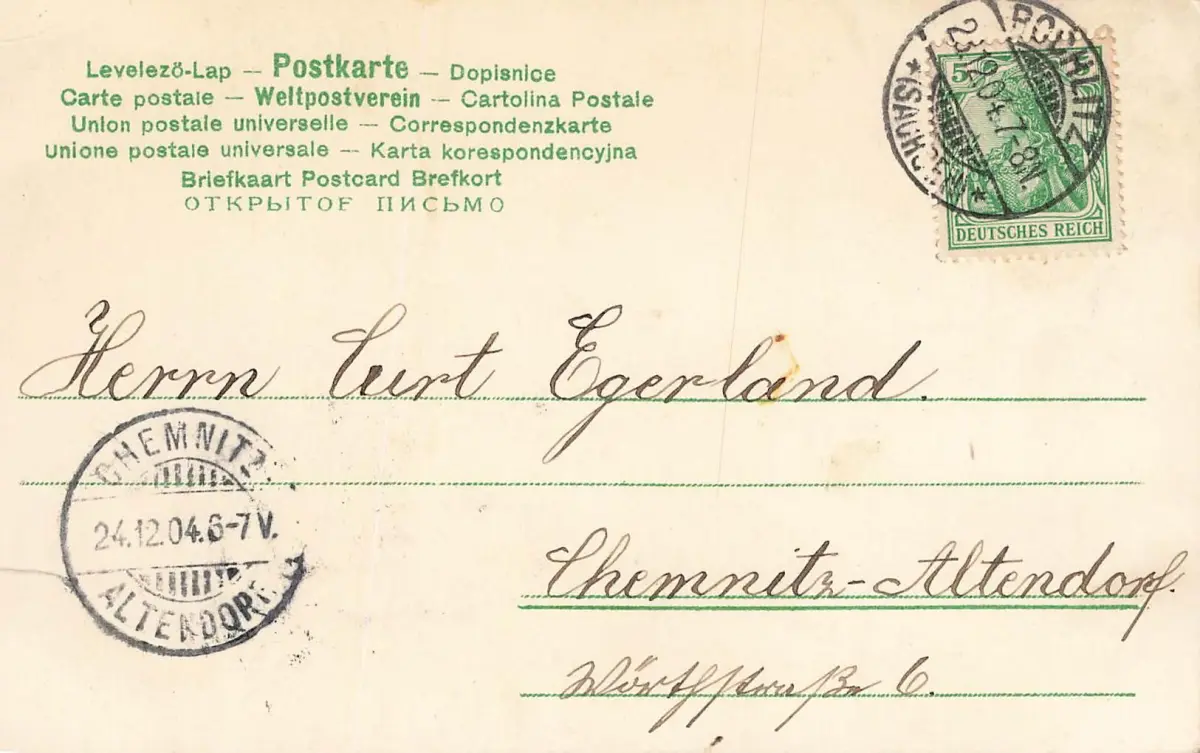 Levelező-Lap — Postkarte — Dopisnice
Carte postale — Weltpostverein — Cartolina Postale
Union postale universelle — Correspondenzkarte
Unione postale universale — Karta korespondencyjna
Briefkaart Postcard Brefkort
ОТКРЫТОЕ ПИСЬМО
ROCHLITZ
23.12.04. 7-8N.
* (SACHSEN) *
5
DEUTSCHES REICH
Herrn Curt Egerland.
CHEMNITZ-
24.12.04. 6-7 V.
ALTENDORF
Chemnitz-Altendorf.
Wörthstraße 6.